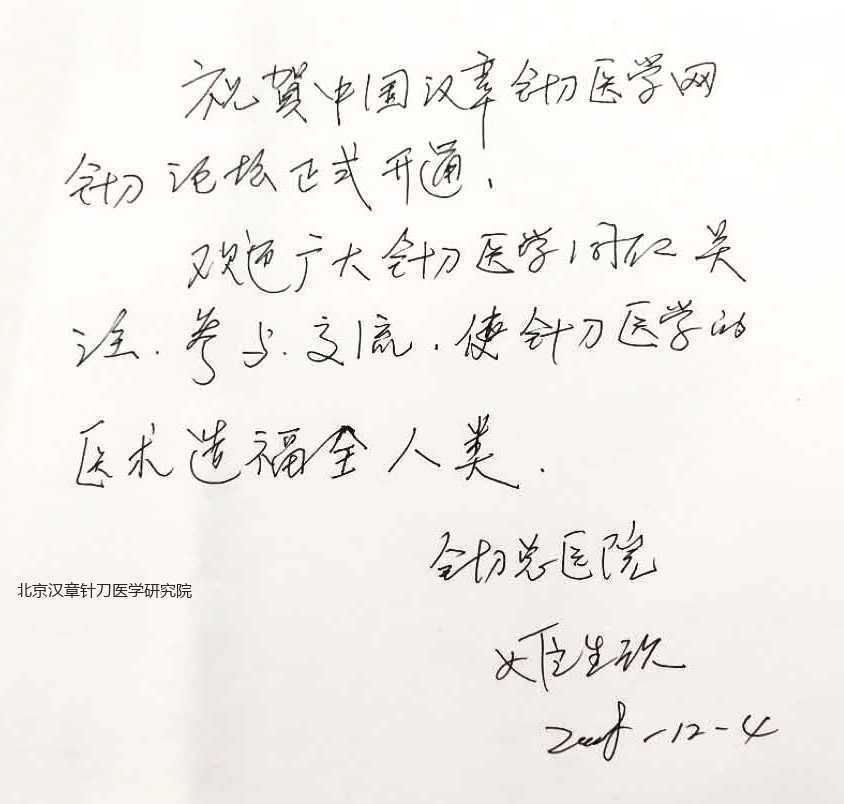 祝賀中国汉章针刀医学网
针刀论坛正式开通，
欢迎广大针刀医学同仁关
注、参与、交流，使针刀医学的
医术造福全人类．
针刀总医院
北京汉章针刀医学研究院
姬生
-12-4